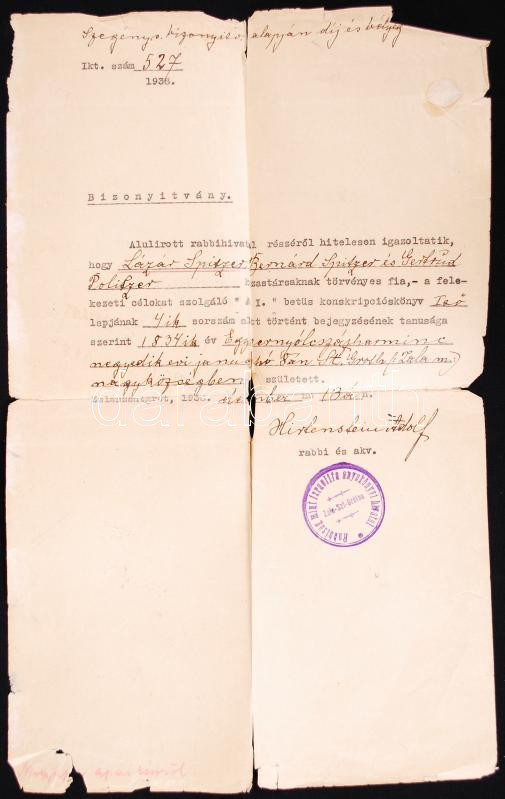 Szegénys. bizonyiv. alapján dij és bélyeg
Ikt. szám 527
1936.
Bizonyitvány.
Alulirott rabbihivatal részéről hitelesen igazoltatik,
hogy Lázár Spitzer, Bernárd Spitzer és Gertrud
Politzer házastársaknak törvényes fia,- a fele-
kezeti célokat szolgáló " A I. " betüs konskripcióskönyv Iső
lapjának 4ik sorszám alatt történt bejegyzésének tanusága
szerint 1834ik év Egyezernyólcszázharminc
negyedik évi január hó Szt. Gróth (Zala m.)
nagyközségben született.
Zalaszentgrót, 1936. december hó 18án.
Hirtenstein Adolf
rabbi és akv.
Rabbiság mint izraelita anyakönyvi hivatal
Zala-Szt-Gróton
darabanth